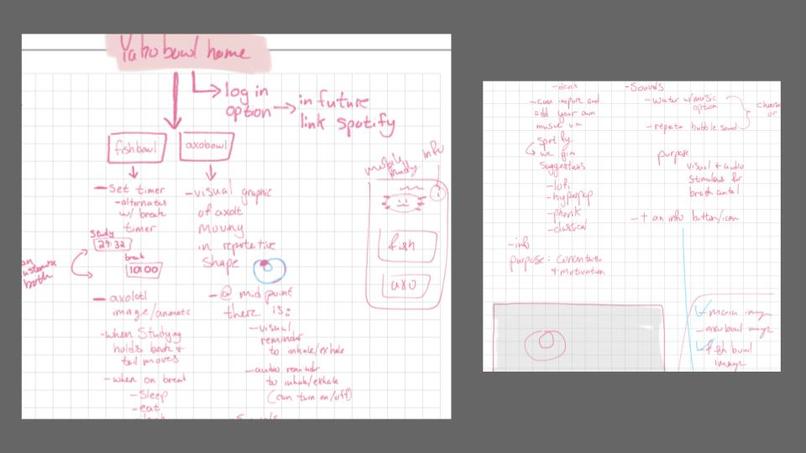 Yakobowl home
log in
option
in future
link spotify
fishbowl
axobowl
- Set timer
- alternates
w/ break
timer
Study
29:32
break
10:00
both
- axolotl
image/animate
- when studying
holds book &
tail moves
- when on break
- Sleep
- eat
- visual graphic
of axolt
moving
in repetative
shape
- @ mid point
there is:
- visual
reminder
to inhale/exhale
- audio reminder
to inhale/exhale
(can turn on/off)
info
fish
axo
- can import and
add your own
music via
Spotify
we give
suggestions
- lofi
- hyperpop
- phonk
- classical
- info
purpose: concentration
+ motivation
- Sounds
- Water w/music
option
- repeate bubble sound
choose
or
purpose
visual + audio
stimulus for
- + an info button/icon
- axobowl image
fish bowl
image